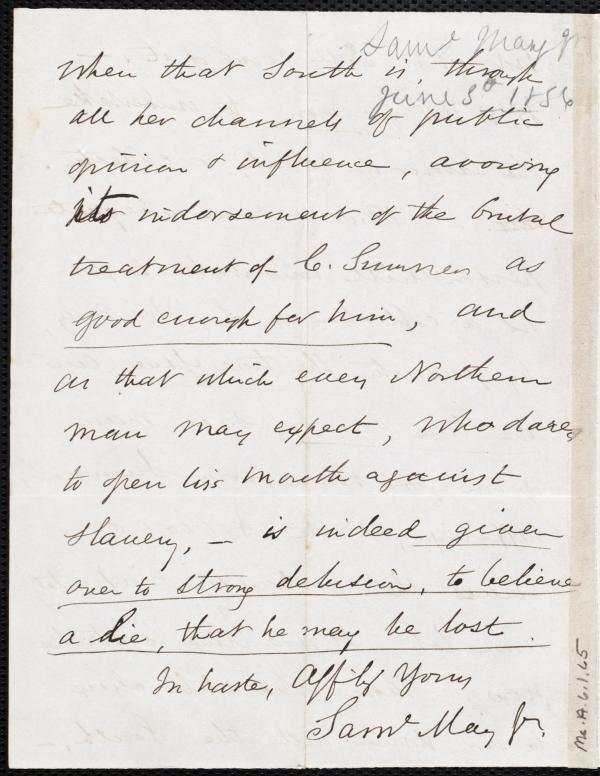 Saml May Jr
June 3d 1856
When that South is, through
all her channels of public
opinion & influence, avowing
its indorsement of the brutal
treatment of C. Sumner as
good enough for him, and
as that which every Northern
man may expect, who dares
to open his mouth against
slavery, – is indeed given
over to strong delusion, to believe
a lie, that he may be lost.
In haste, Affly Yours
Saml May Jr.
Ms.A.6.1.65